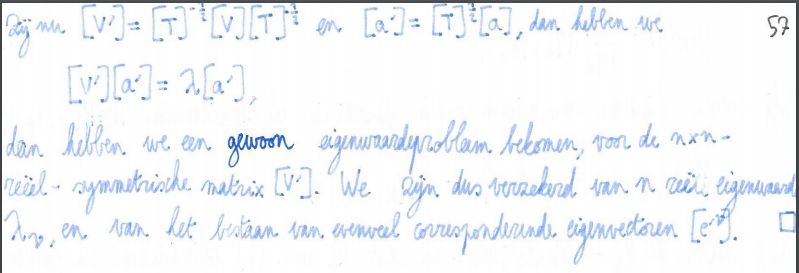 Zij nu [V′] = [T]^{-1/2} [V] [T]^{-1/2} en [a′] = [T]^{1/2} [a], dan hebben we 57
[V′][a′] = λ[a′],
dan hebben we een gewoon eigenwaardeprobleem bekomen, voor de n×n-
reëel-symmetrische matrix [V′]. We zijn dus verzekerd van n reële eigenwaard
λ_ν, en van het bestaan van evenveel corresponderende eigenvectoren [e′^ν]. □